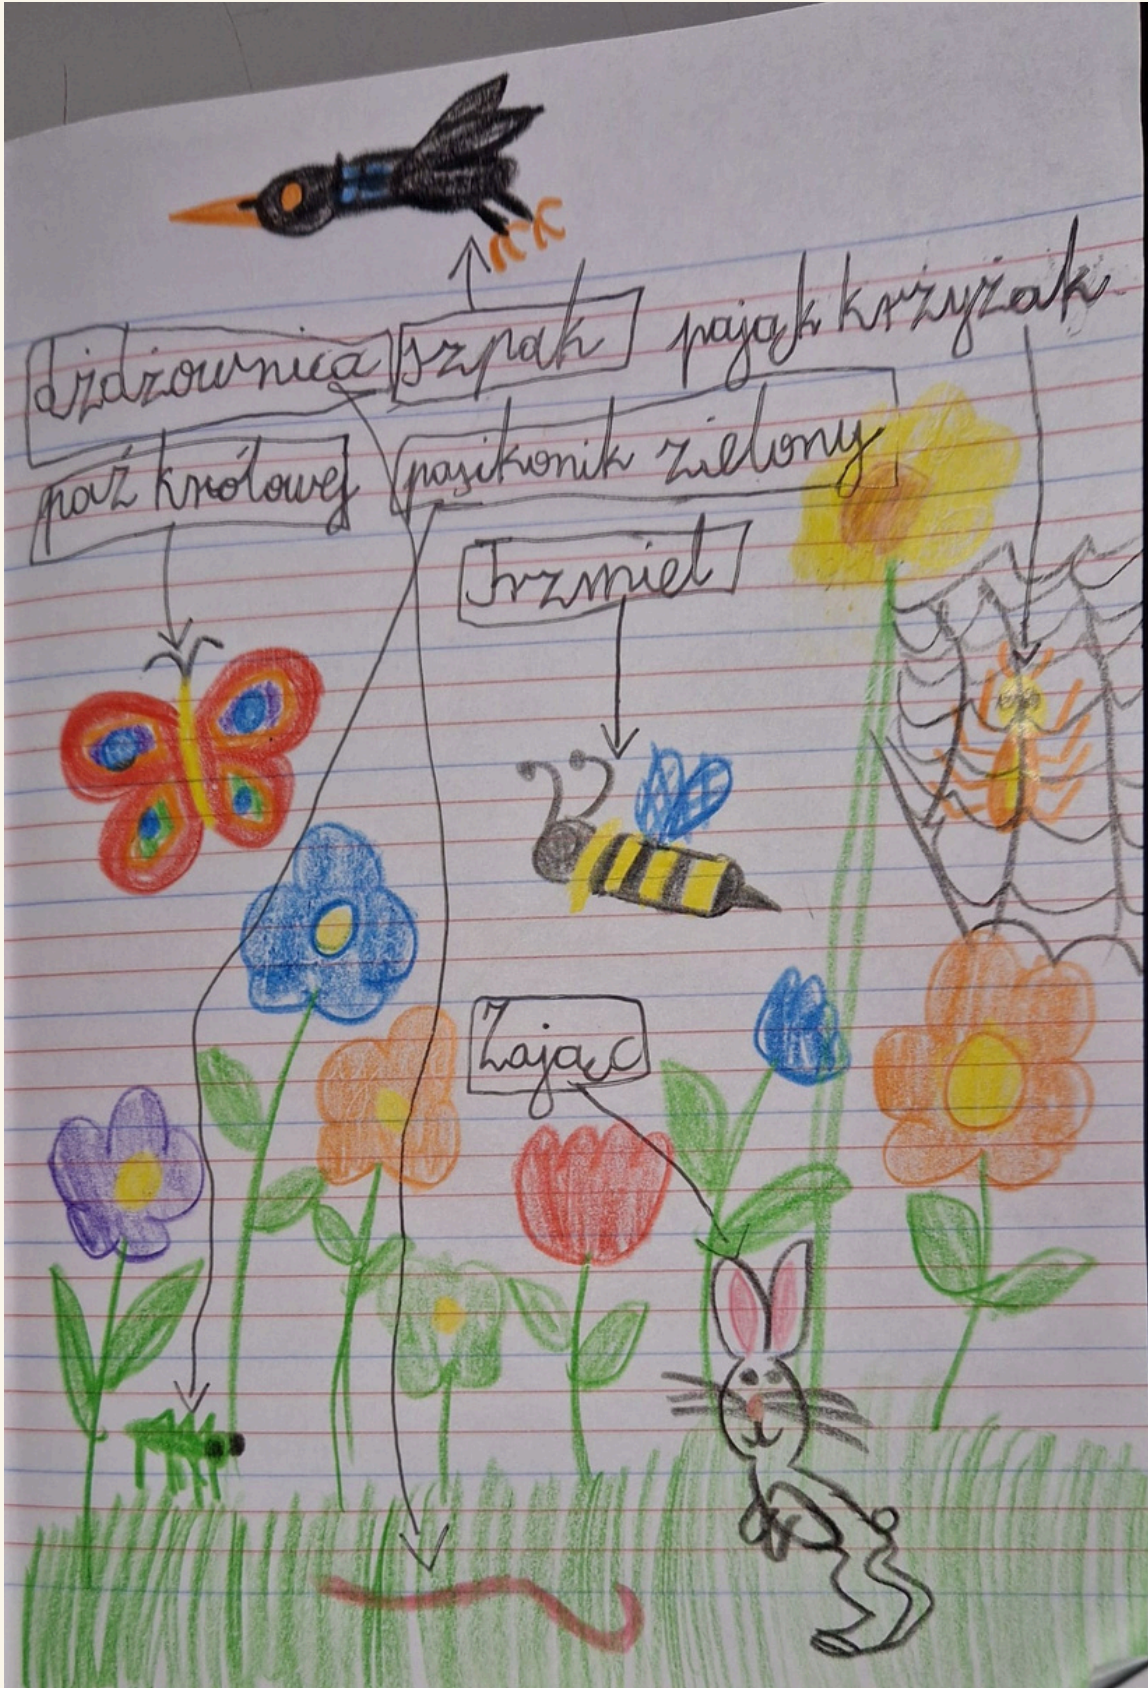 dżdżownica szpak pająk krzyżak
paź królowej pasikonik zielony
Trzmiel
Zając